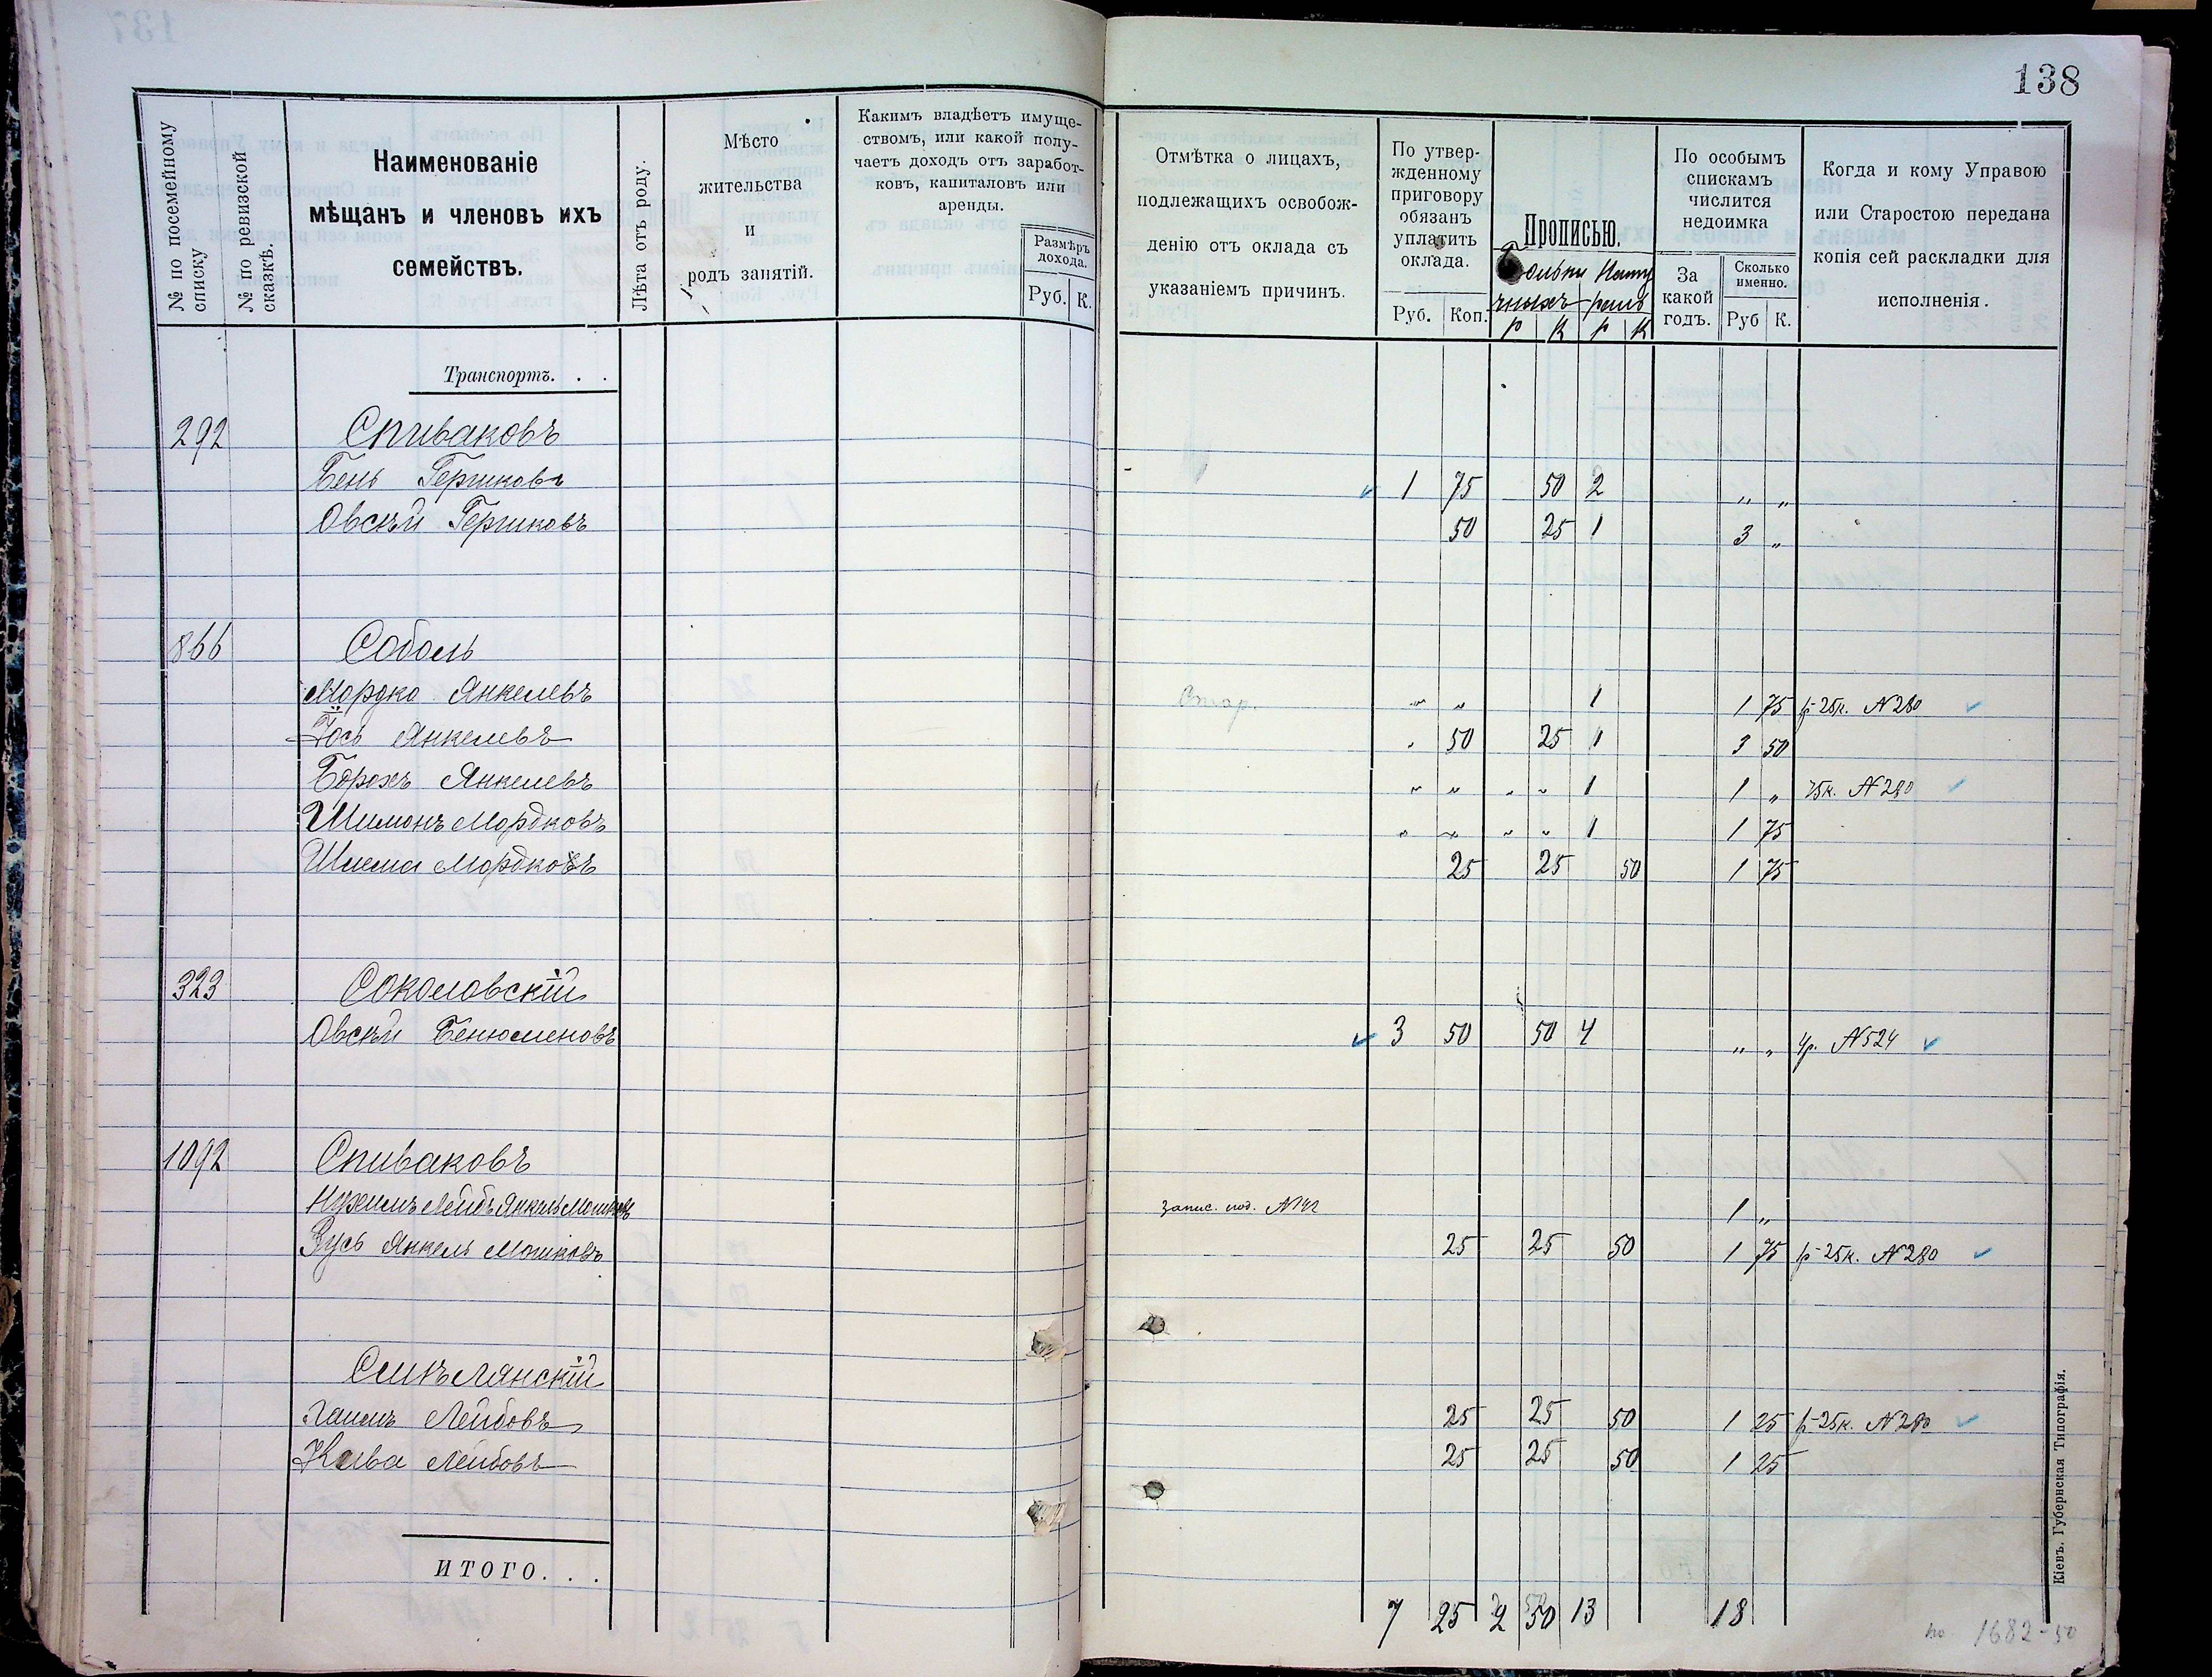 138
№ по посемейному списку
№ по ревизской сказкѣ.
Наименованіе
мѣщанъ и членовъ ихъ
семействъ.
Лѣта отъ роду.
Мѣсто
жительства
и
родъ занятій.
Какимъ владѣетъ имуще-
ствомъ, или какой полу-
чаетъ доходъ отъ заработ-
ковъ, капиталовъ или
аренды.
Размѣръ
дохода.
Руб. К.
Отмѣтка о лицахъ,
подлежащихъ освобож-
денію отъ оклада съ
указаніемъ причинъ.
По утвер-
жденному
приговору
обязанъ
уплатить
оклада.
Руб. Коп.
Прописью.
р К р К
По особымъ
спискамъ
числится
недоимка
За
какой
годъ.
Сколько
именно.
Руб К.
Когда и кому Управою
или Старостою передана
копія сей раскладки для
исполненія.
Транспортъ. . .
292 Спиваковъ
Бень Гершковъ 1 75 50 2 „ „
Овсѣй Гершковъ 50 25 1 3 „
866 Соболь
Мордко Янкелевъ „ „ 1 1 75 р 25к. №280
Іось Янкелевъ 50 25 1 3 50
Борохъ Янкелевъ „ „ „ „ 1 1 „ 75к. №280
Шимонъ Мордковъ „ „ „ „ 1 1 75
Шлема Мордковъ 25 25 50 1 75
323 Соколовскій
Овсѣй Бенюменовъ 3 50 50 4 „ „ 4р. №524
1092 Спиваковъ
Нухимъ Лейбъ Янкель Мошковъ запис. под. 1 „
Зусь Янкель Мошковъ 25 25 50 1 75 р 25к. №280
Смѣлянскій
Хаимъ Лейбовъ 25 25 50 1 25 р 25к. №280
Акива Лейбовъ 25 25 50 1 25
ИТОГО. . .
7 25 2 50 13 18
1682-50
Кіевъ. Губернская Типографія.